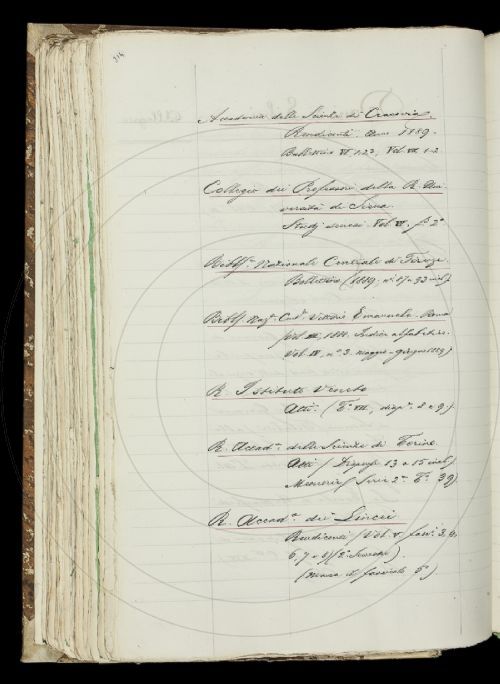 314
Accademia delle Scienze di Cracovia.
Rendiconti. Anno 1889.
Bullettino VI. 1-22, Vol. VII. 1-2
Collegio dei Professori della R. Uni-
versità di Siena.
Studj senesi. Vol. VI. f° 2°
Bibl.ª Nazionale Centrale di Firenze.
Bollettino (1889. n.i 87 a 92 incl.)
Bibl. Naz. Cent. Vittorio Emanuele. Roma
1888. Indice alfabetico.
Vol. IV, n.° 3. maggio e giugno 1889)
R. Istituto Veneto
Atti. (T.° VII, disp.e 8 e 9).
R. Accad.ª delle Scienze di Torino.
Atti (Dispense 13 a 15 incl.)
Memorie (Serie 2ª T.° 39)
R. Accad.ª dei Lincei
Rendiconti (Vol. V. fasc. 3, 4,
6, 7 e 8) (2° Semestre).
(Manca il fascicolo 5°).